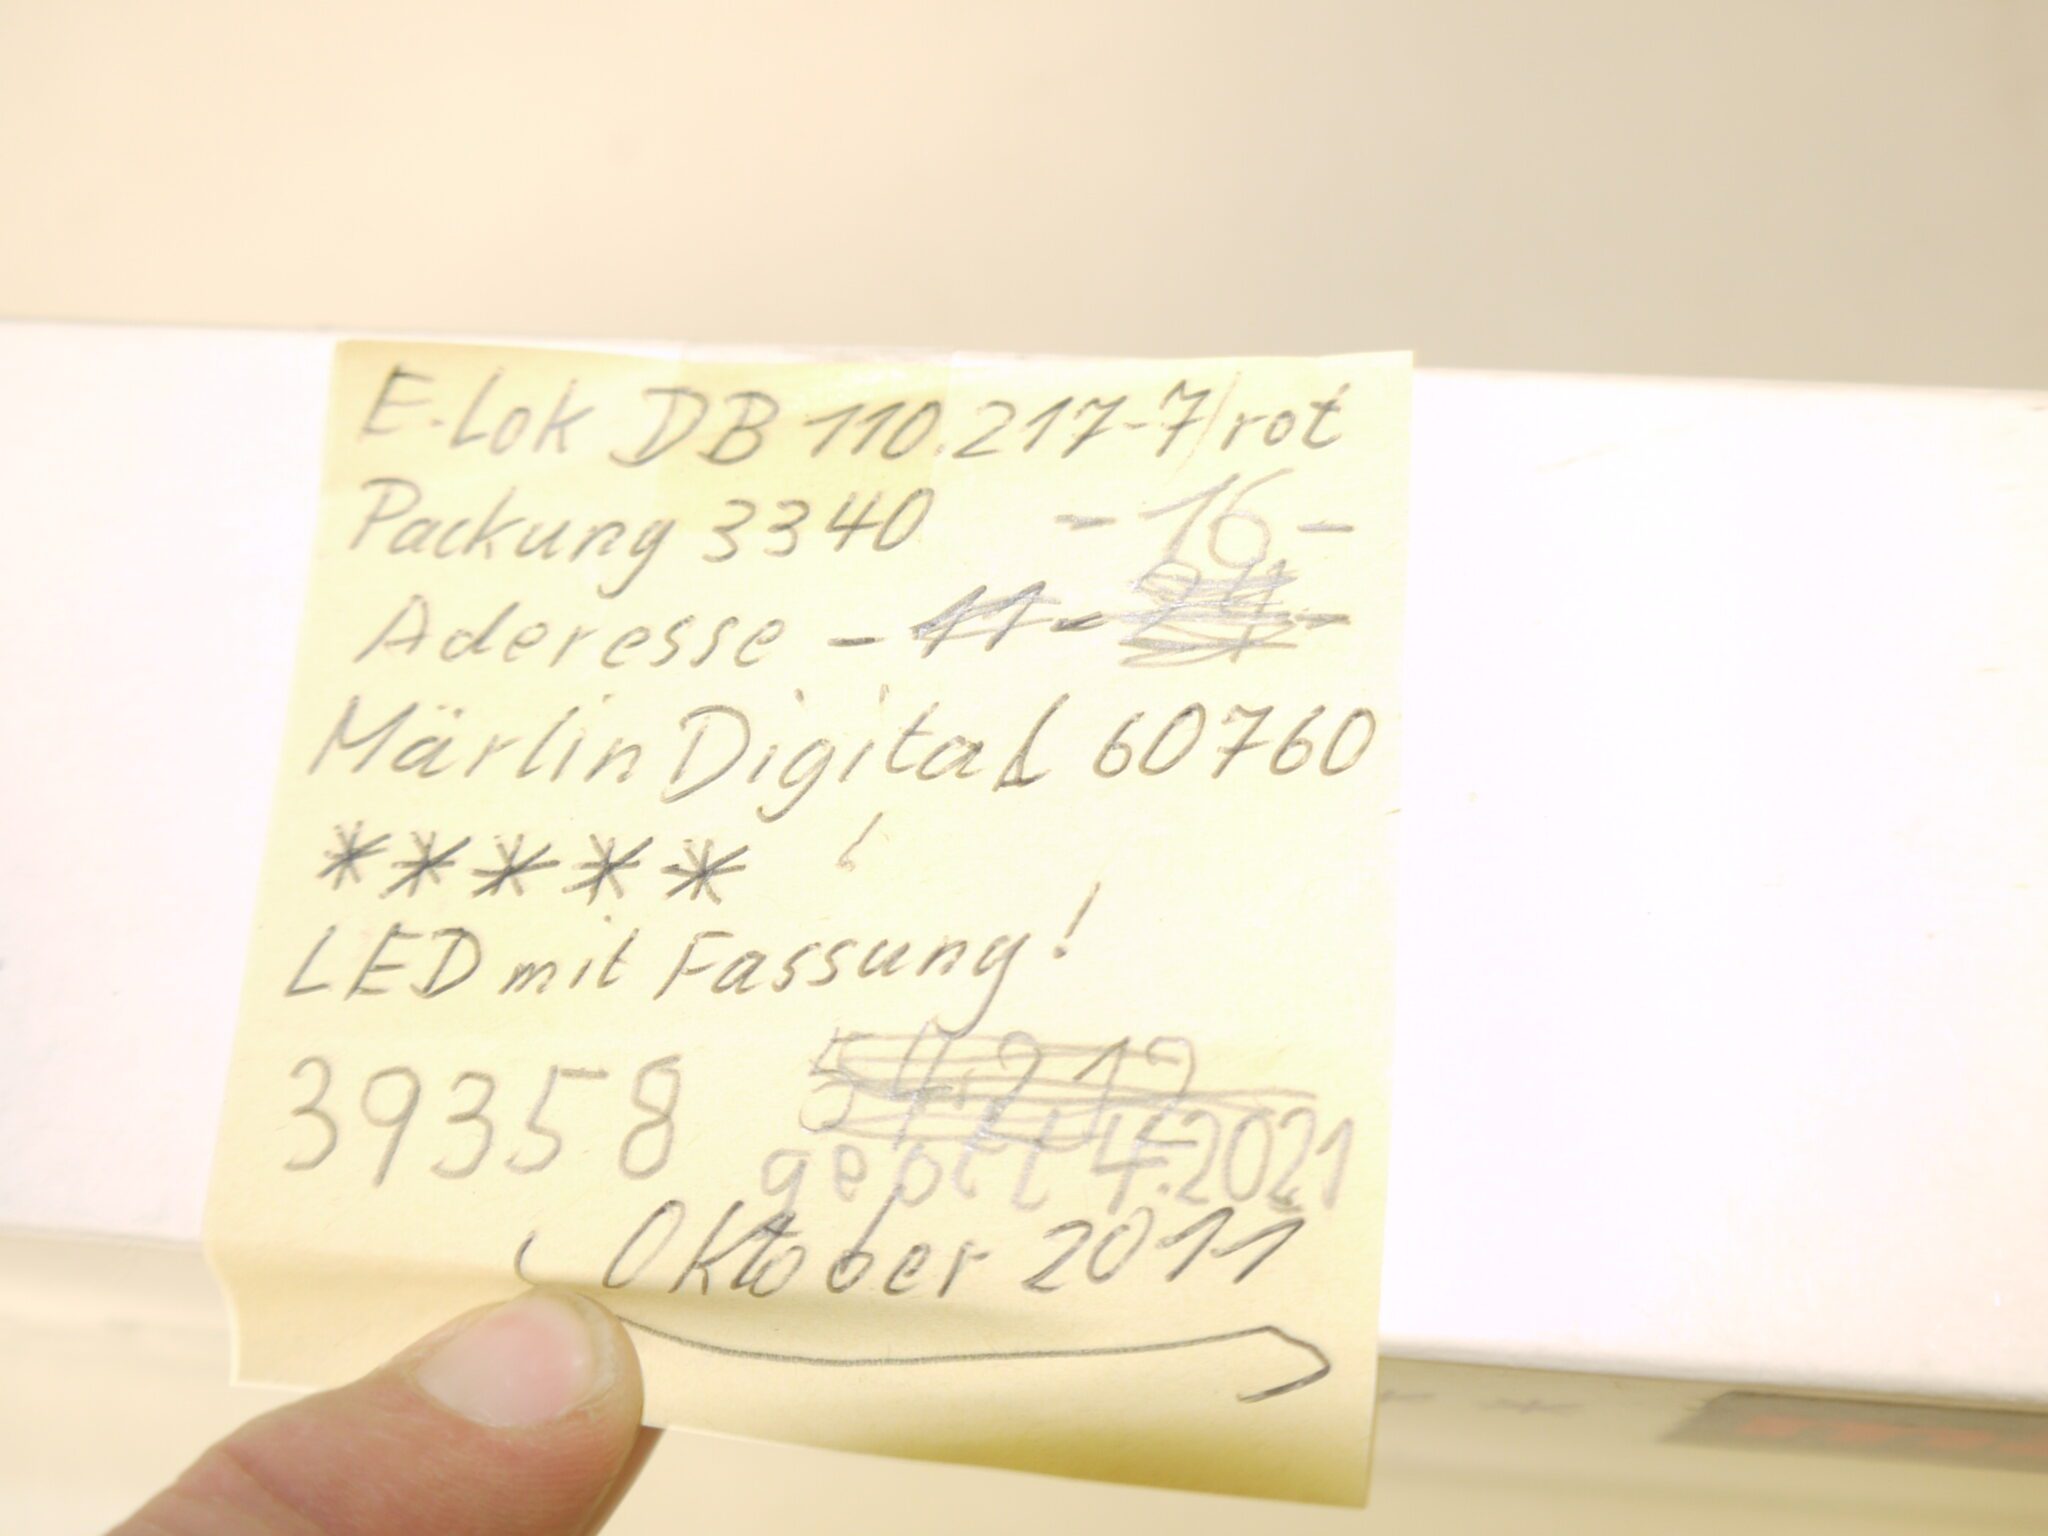 E-Lok DB 110.217-7/rot
Packung 3340 -16-
Aderesse - 11 -
Märlin Digital 60760
*****
LED mit Fassung!
39358
4.2021
Oktober 2011